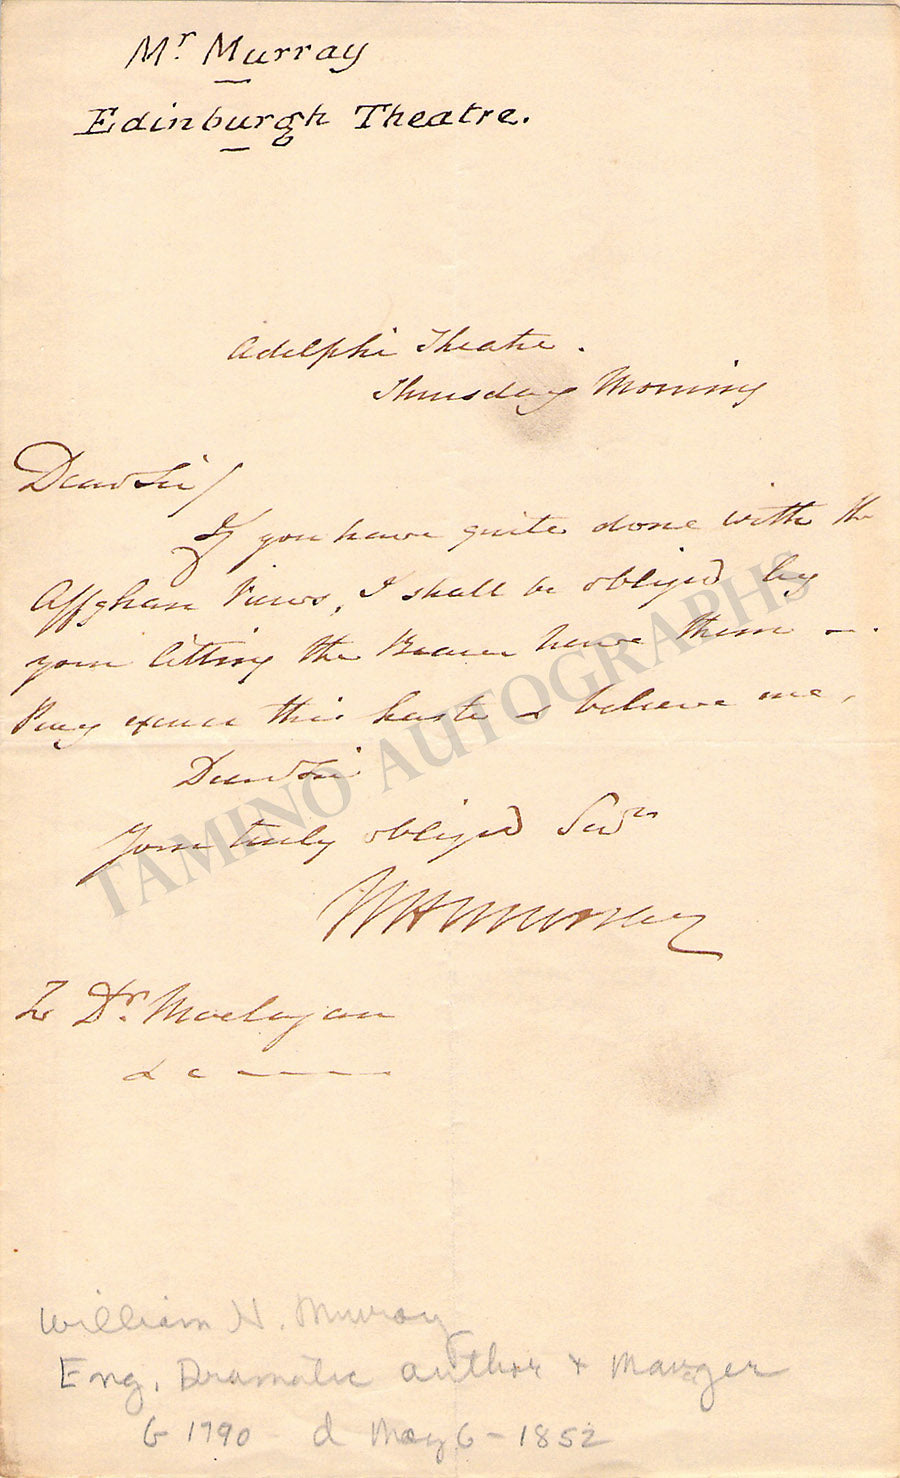 Mr Murray
Edinburgh Theatre.
Adelphi Theatre.
Thursday Morning
Dear Sir/
If you have quite done with the
Affghan Views, I shall be obliged by
your letting the Bearer have them -.
Pray excuse this haste & believe me,
Dear Sir
Your truly obliged Servt
WHMurray
To Dr. Maclagan
&c ----
TAMINO AUTOGRAPHS
William H. Murray
Eng. Dramatic author + Manager
b 1790 d May 6 - 1852